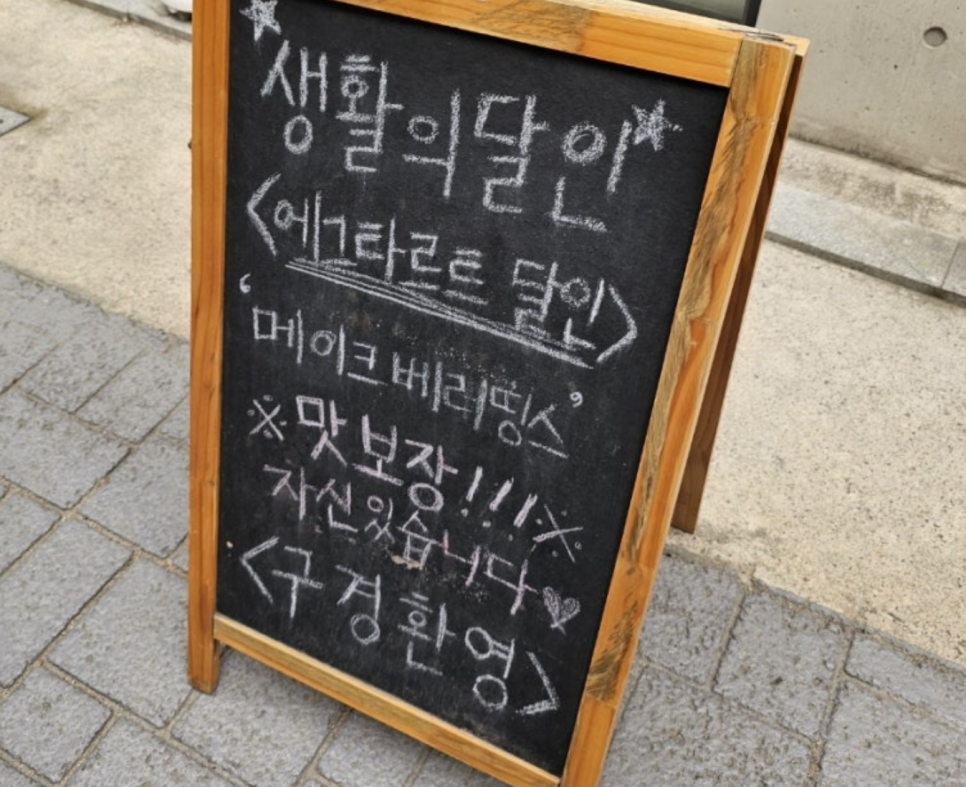 생활의달인
<에그타르트 달인>
‘메이크베러띵스’
※맛보장!!!※
자신있습니다♥
<구경환영>